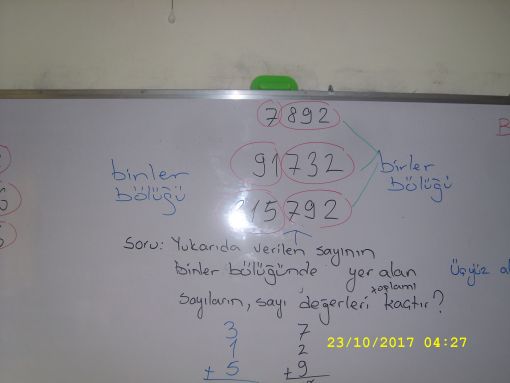 7 892
91 732
binler bölüğü
birler bölüğü
315 792
Soru: Yukarıda verilen sayının
binler bölüğünde yer alan
sayıların, sayı değerleri toplamı kaçtır?
Üçyüz
3 7
1 2
+ 5 + 9
23/10/2017 04:27